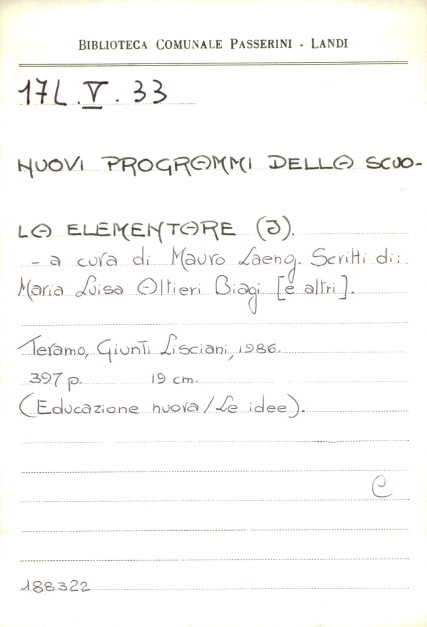 BIBLIOTECA COMUNALE PASSERINI - LANDI
17L.V.33
NUOVI PROGRAMMI DELLA SCUO-
LA ELEMENTARE (I).
- a cura di Mauro Laeng. Scritti di:
Maria Luisa Altieri Biagi [e altri].
Teramo, Giunti Lisciani, 1986.
397 p. 19 cm.
(Educazione nuova/Le idee).
C
188322